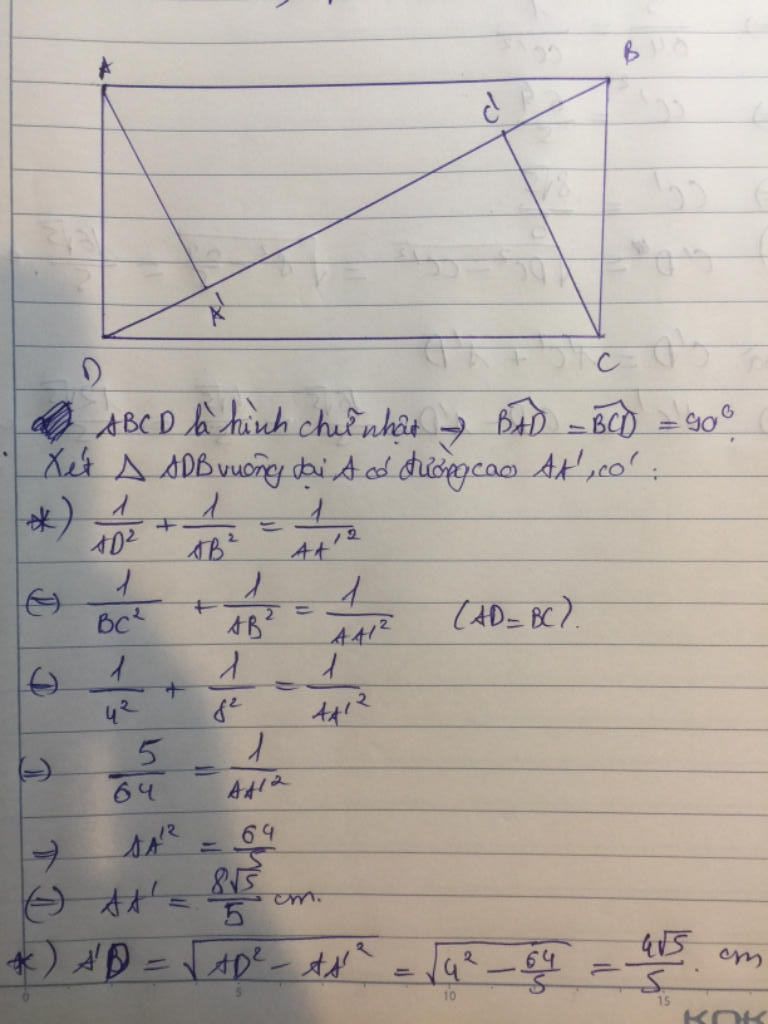 A
B
C'
A'
D
C
ABCD là hình chữ nhật → \widehat{BAD} = \widehat{BCD} = 90°
Xét Δ ADB vuông tại A có đường cao AA', có:
*) 1/AD² + 1/AB² = 1/AA'²
(=) 1/BC² + 1/AB² = 1/AA'² (AD = BC).
(=) 1/4² + 1/8² = 1/AA'²
(=) 5/64 = 1/AA'²
=) AA'² = 64/5
(=) AA' = 8√5/5 cm.
*) A'D = √(AD² - AA'²) = √(4² - 64/5) = 4√5/5 . cm
0 5 10 15
KOK